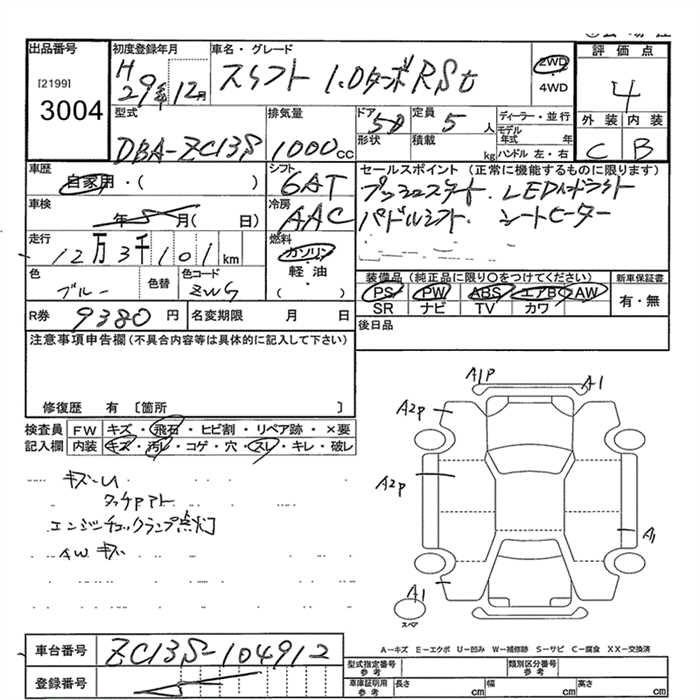 出品番号
[2199]
3004
初度登録年月
H 29年 12月
車名・グレード
スイフト 1.0ターボRSt
2WD
4WD
評価点
4
外装 内装
C B
型式
DBA-ZC13S
排気量
1000cc
ドア 5D
形状
定員 5人
積載 kg
ディーラー・並行
モデル年式 年
ハンドル 左・右
車歴
自家用・( )
シフト
6AT
セールスポイント (正常に機能するものに限ります)
プッシュスタート. LEDヘッドライト
パドルシフト. シートヒーター
車検
年 月( 日)
冷房
AAC
走行
12万3千101km
燃料
ガソリン
軽油
( )
色
ブルー
色替
色コード
ZWG
装備品(純正品に限り○をつけてください)
PS PW ABS エアB AW
SR ナビ TV カワ
新車保証書
有・無
R券 9380円
名変期限 月 日
後日品
注意事項申告欄(不具合内容等は具体的に記入して下さい)
修復歴 有 〔箇所 〕
検査員記入欄
FW キズ・飛石・ヒビ割・リペア跡・×要
内装 キズ・汚レ・コゲ・穴・スレ・キレ・破レ
キズ・U
タッチアト
エンジンチェックランプ点灯
AWキズ
A1P A1
A2P
A2P
A1
A1
スペア
車台番号 ZC13S-104912
登録番号
A-キズ E-エクボ U-凹み W-補修跡 S-サビ C-腐食 XX-交換済
型式指定番号 参考
類別区分番号 参考
車庫証明用 参考
長さ cm 幅 cm 高さ cm